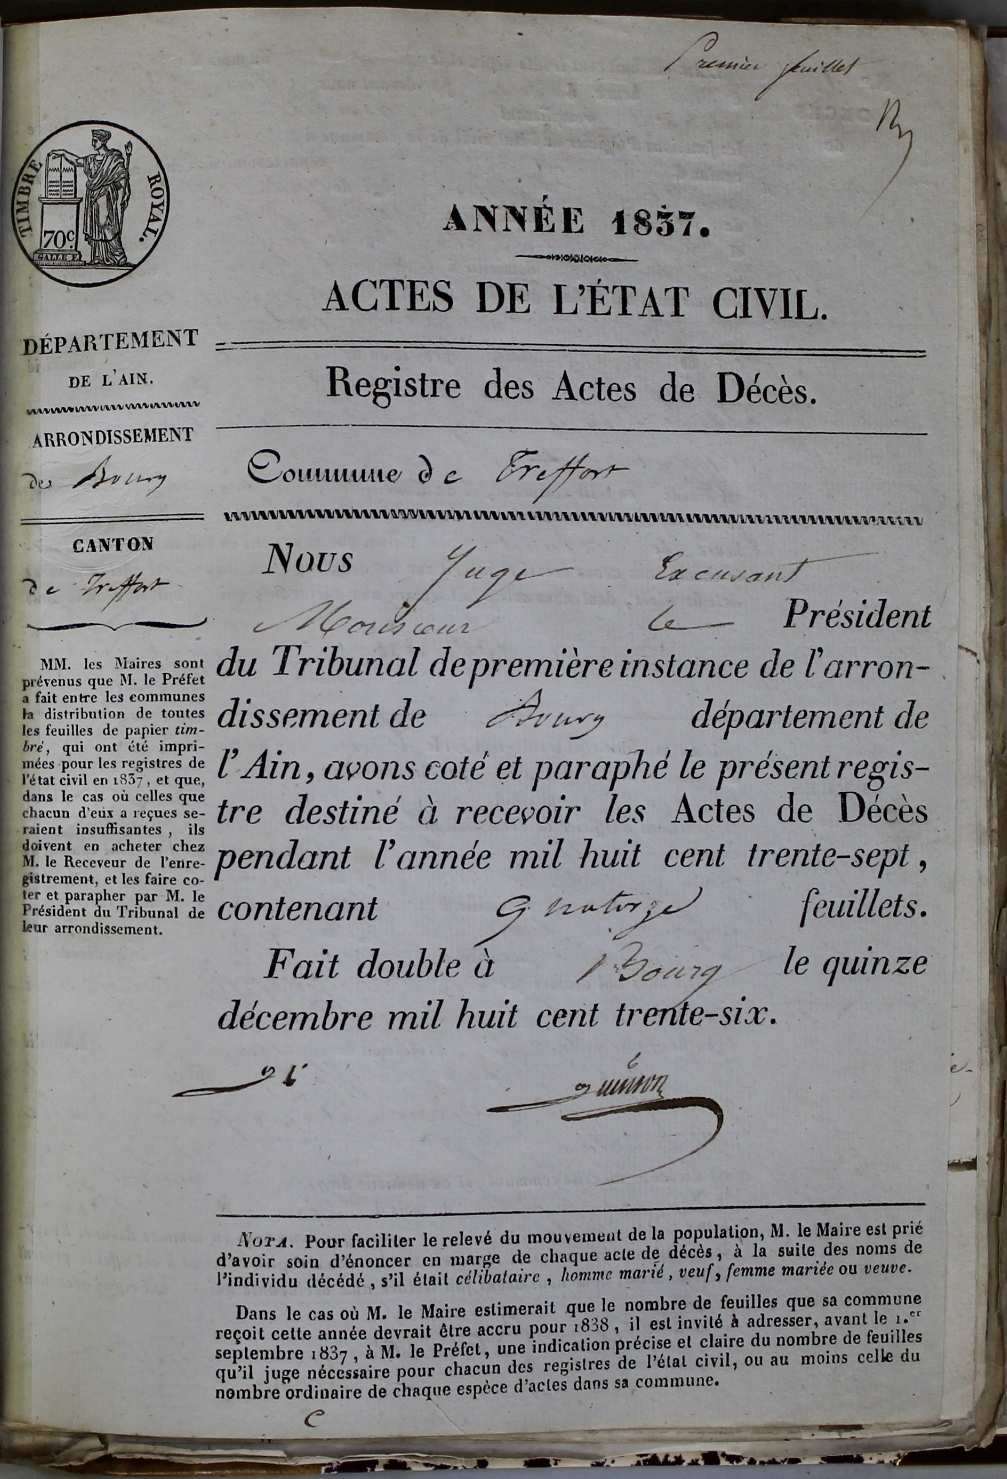 Premier feuillet
TIMBRE ROYAL.
70 c.
ANNÉE 1837.
ACTES DE L'ÉTAT CIVIL.
DÉPARTEMENT
DE L'AIN.
ARRONDISSEMENT
de Bourg
CANTON
de Treffort
MM. les Maires sont
prévenus que M. le Préfet
a fait entre les communes
la distribution de toutes
les feuilles de papier tim-
bré, qui ont été impri-
mées pour les registres de
l'état civil en 1837, et que,
dans le cas où celles que
chacun d'eux a reçues se-
raient insuffisantes, ils
doivent en acheter chez
M. le Receveur de l'enre-
gistrement, et les faire co-
ter et parapher par M. le
Président du Tribunal de
leur arrondissement.
Registre des Actes de Décès.
Commune de Treffort
Nous Juge Excusant
Monsieur le Président
du Tribunal de première instance de l'arron-
dissement de Bourg département de
l'Ain, avons coté et paraphé le présent regis-
tre destiné à recevoir les Actes de Décès
pendant l'année mil huit cent trente-sept,
contenant quatorze feuillets.
Fait double à Bourg le quinze
décembre mil huit cent trente-six.
NOTA. Pour faciliter le relevé du mouvement de la population, M. le Maire est prié
d'avoir soin d'énoncer en marge de chaque acte de décès, à la suite des noms de
l'individu décédé, s'il était célibataire, homme marié, veuf, femme mariée ou veuve.
Dans le cas où M. le Maire estimerait que le nombre de feuilles que sa commune
reçoit cette année devrait être accru pour 1838, il est invité à adresser, avant le 1.er
septembre 1837, à M. le Préfet, une indication précise et claire du nombre de feuilles
qu'il juge nécessaire pour chacun des registres de l'état civil, ou au moins celle du
nombre ordinaire de chaque espèce d'actes dans sa commune.
C